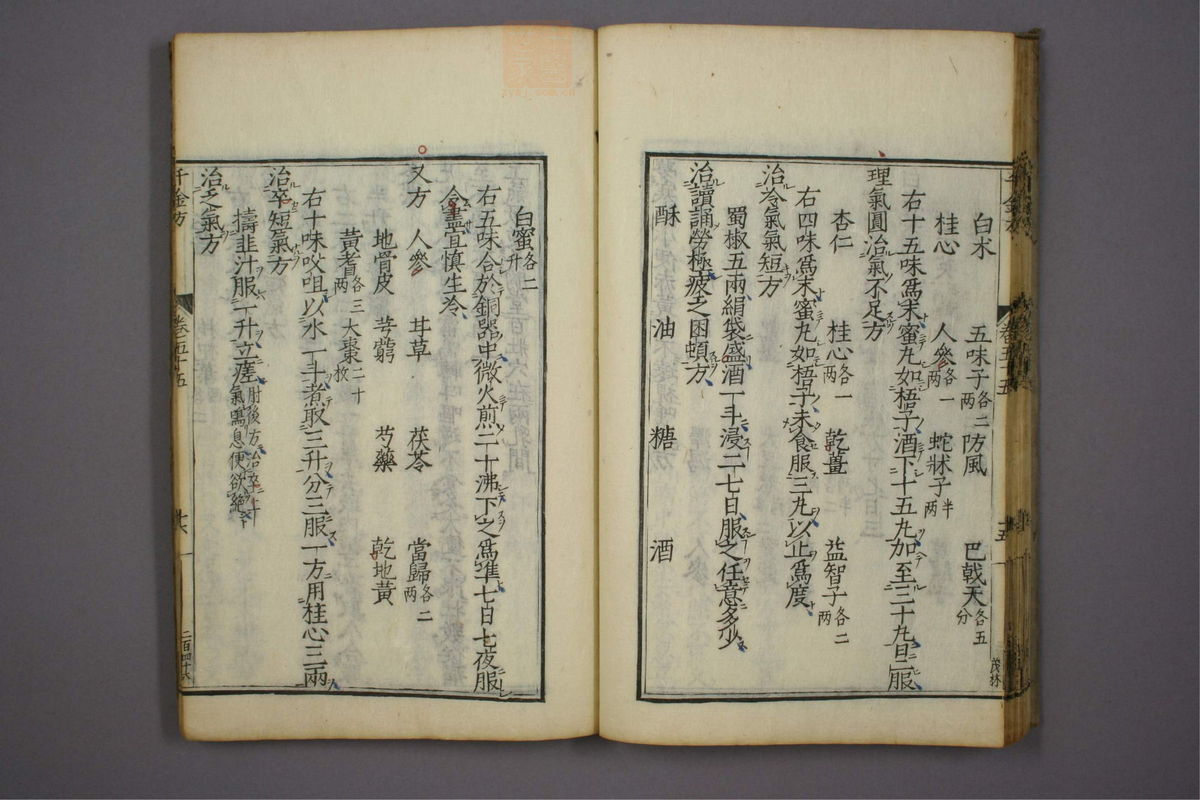 白朮 五味子各二两 防風 巴戟天各五分
桂心 人參各一两 蛇牀子半两
右十五味爲末蜜丸如梧子酒下十五丸加至三十丸日二服
理氣圓治氣不足方
杏仁 桂心各一两 乾薑 益智子各二两
右四味爲末蜜丸如梧子未食服三丸以止爲度
治冷氣氣短方
蜀椒五兩絹袋盛酒一斗浸二七日服之任意多少
治讀誦勞極疲乏困頓方
酥 油 糖 酒
卷五十五 十五
茂林
白蜜各二升
右五味合於銅器中微火煎二十沸下之爲準七日七夜服
令盡宜慎生冷
又方 人參 甘草 茯苓 當歸各二两
地骨皮 芎藭 芍藥 乾地黃
黃耆各三两 大棗二十枚
右十味㕮咀以水一斗煮取三升分三服一方用桂心三兩
治卒短氣方
擣韭汁服一升立瘥肘後方治卒上氣鳴息便欲絶
治乏氣方
千金方 卷五十五 十六 二百四十六